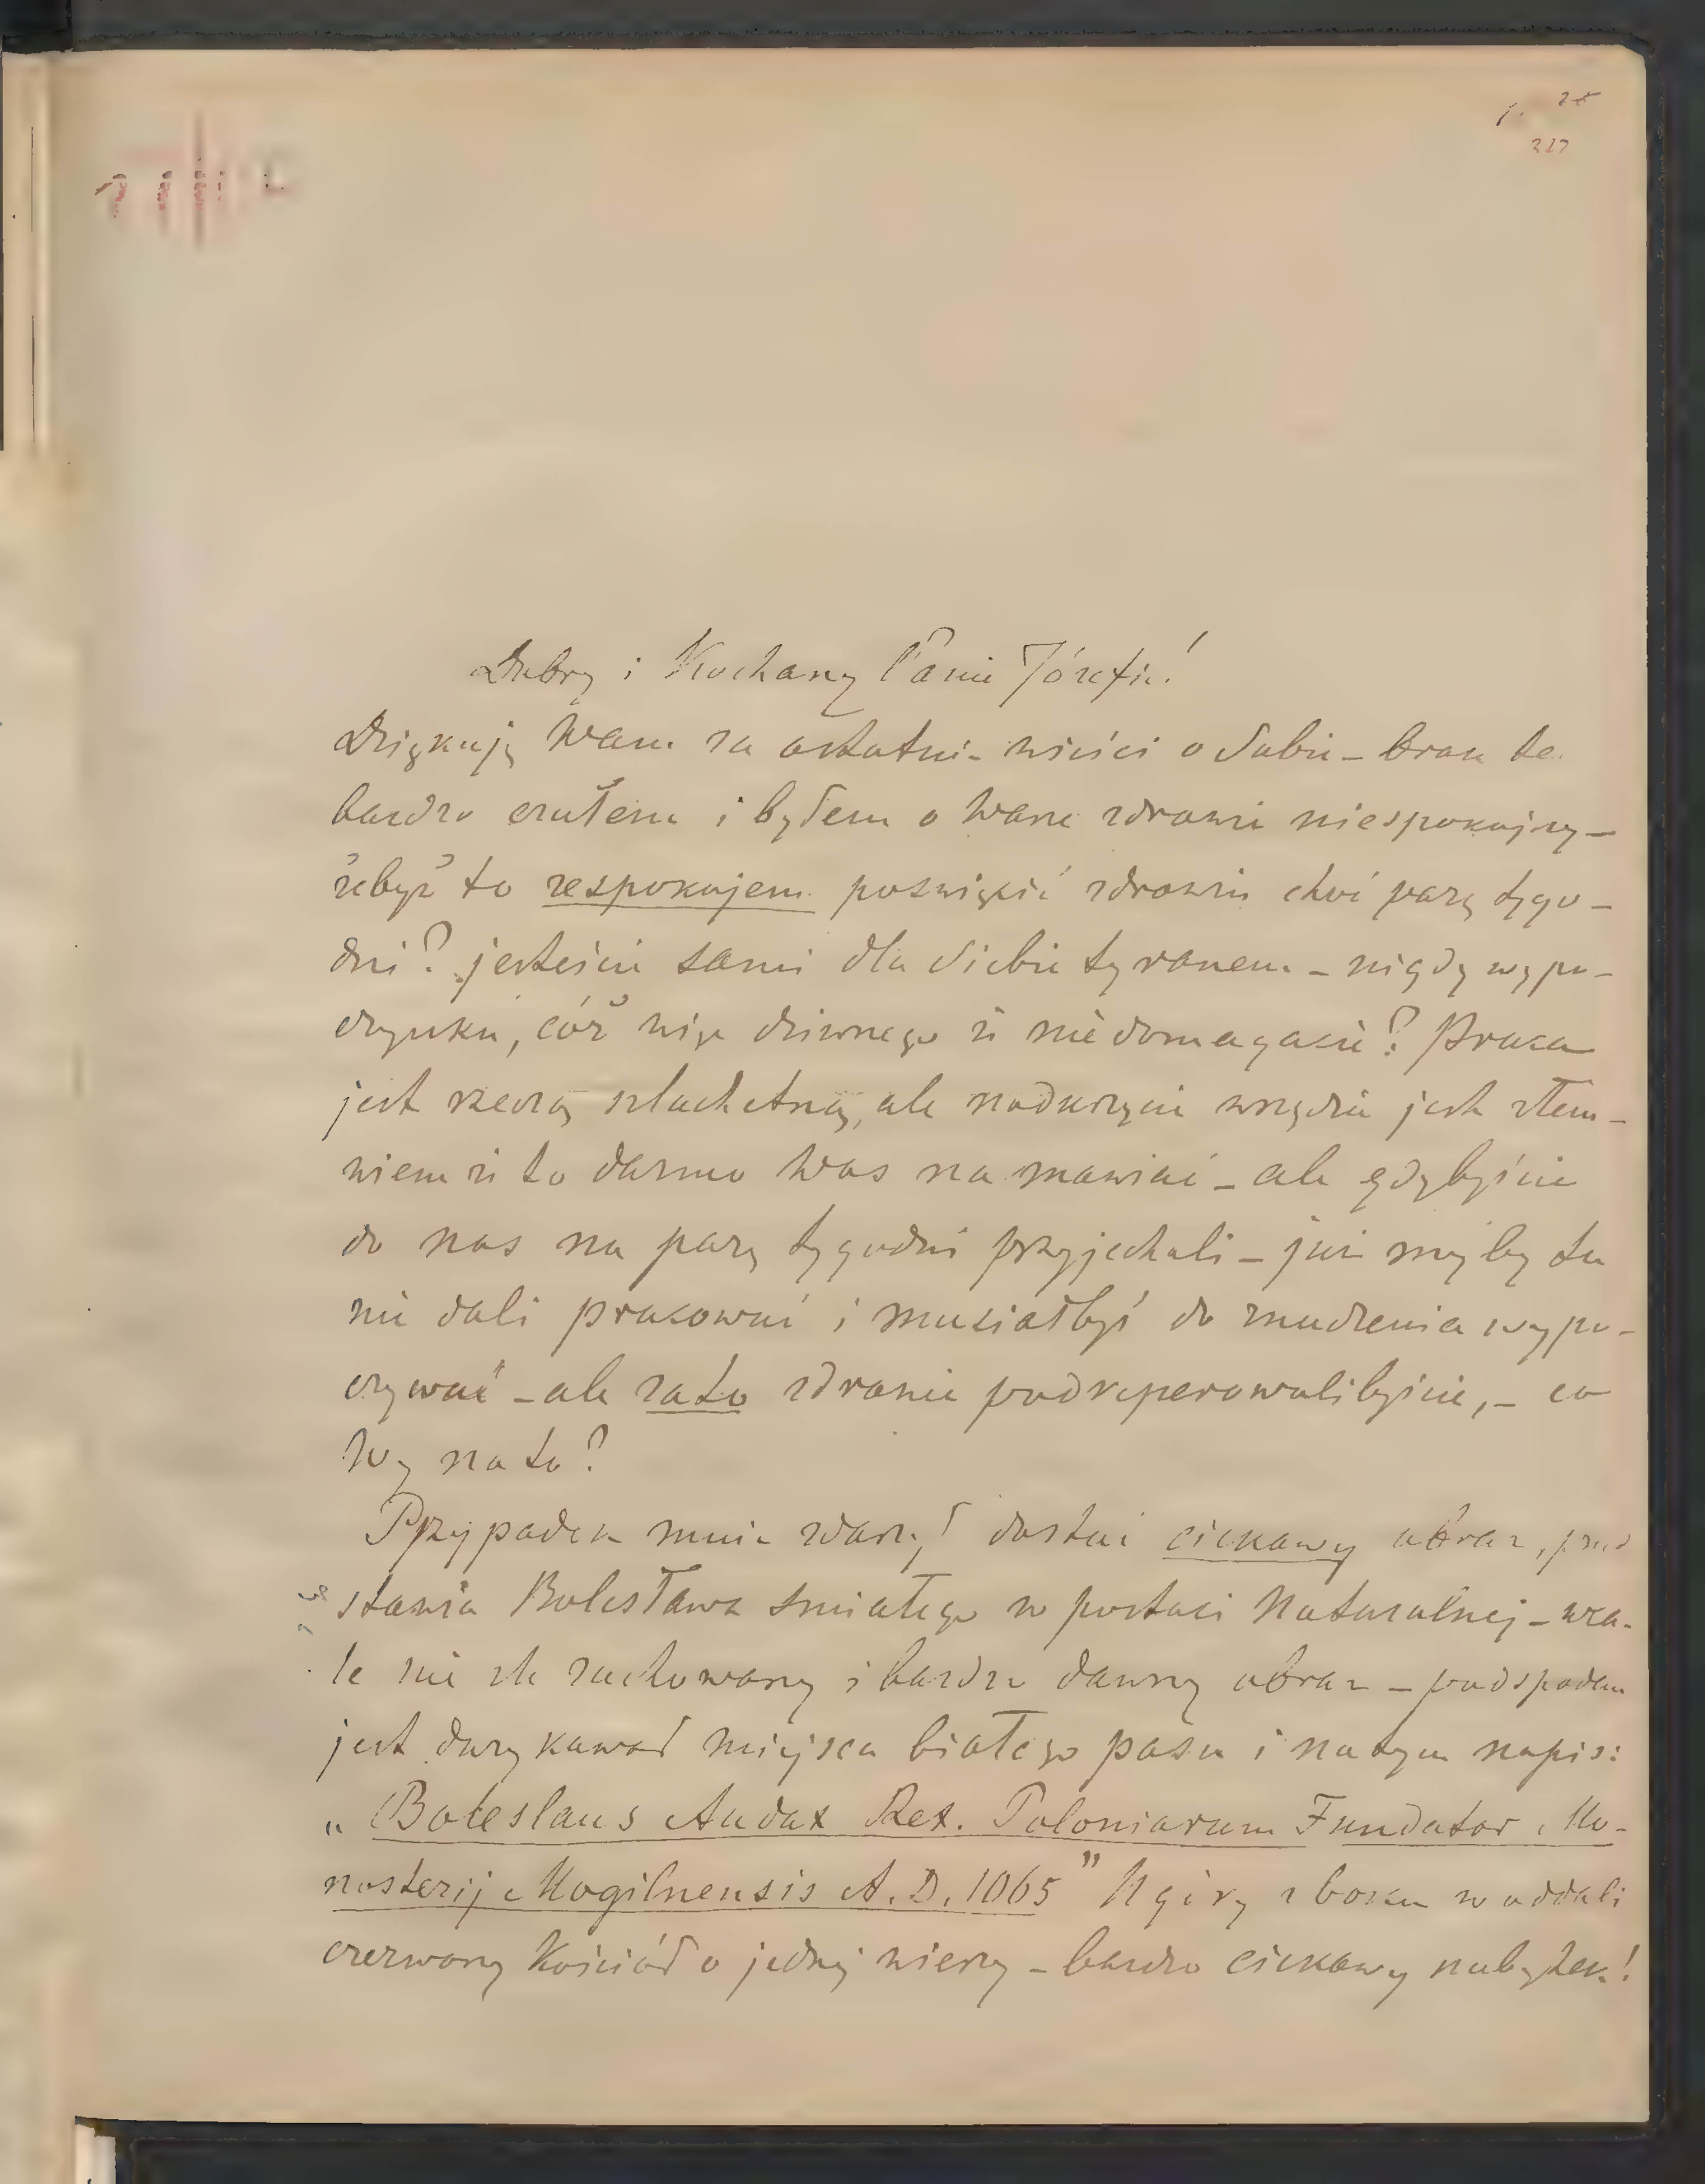 217
Dobry i Kochany Panie Józefie!
Dziękuję Wam za ostatnie wieści o Sobie – brak te
bardzo czułem i byłem o Wasze zdrowie niespokojny –
żebyż to z spokojem poświęcić zdrowiu choć parę tygo-
dni? jesteście sami dla Siebie tyranem – nigdy wypo-
czynku, cóż więc dziwnego iż niedomagacie? Praca
jest rzeczą szlachetną, ale nadużycie wszędzie jest złem –
wiem iż to darmo Was namawiać – ale gdybyście
do nas na parę tygodni przyjechali – już myby tu
nie dali pracować i musiałbyś do znudzenia wypo-
czywać – ale zato zdrowie podreperowalibyście, – co
Wy na to?
Przypadek mnie zdarzył dostać ciekawy obraz, przed
stawia Bolesława Śmiałego w postaci Naturalnej – wca-
le nie źle zachowany i bardzo dawny obraz – pod spodem
jest duży kawał miejsca białego pasu i na tym napis:
„Boleslaus Audax Rex. Poloniarum Fundator Mo-
nasterij Mogilnensis A.D. 1065” U góry z boku w oddali
czerwony Kościół o jednej wieży – bardzo ciekawy nabytek!